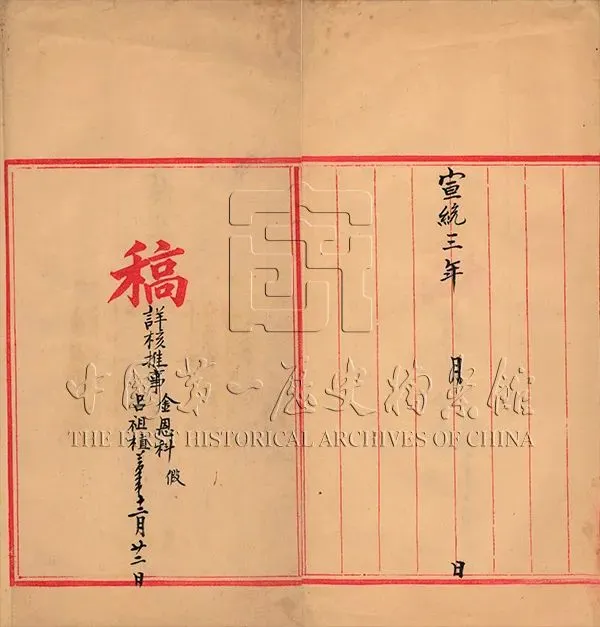 宣統三年 月 日
稿
詳核推事
金恩科 假
呂祖植 十二月廿二日
中國第一歷史檔案館
THE FIRST HISTORICAL ARCHIVES OF CHINA